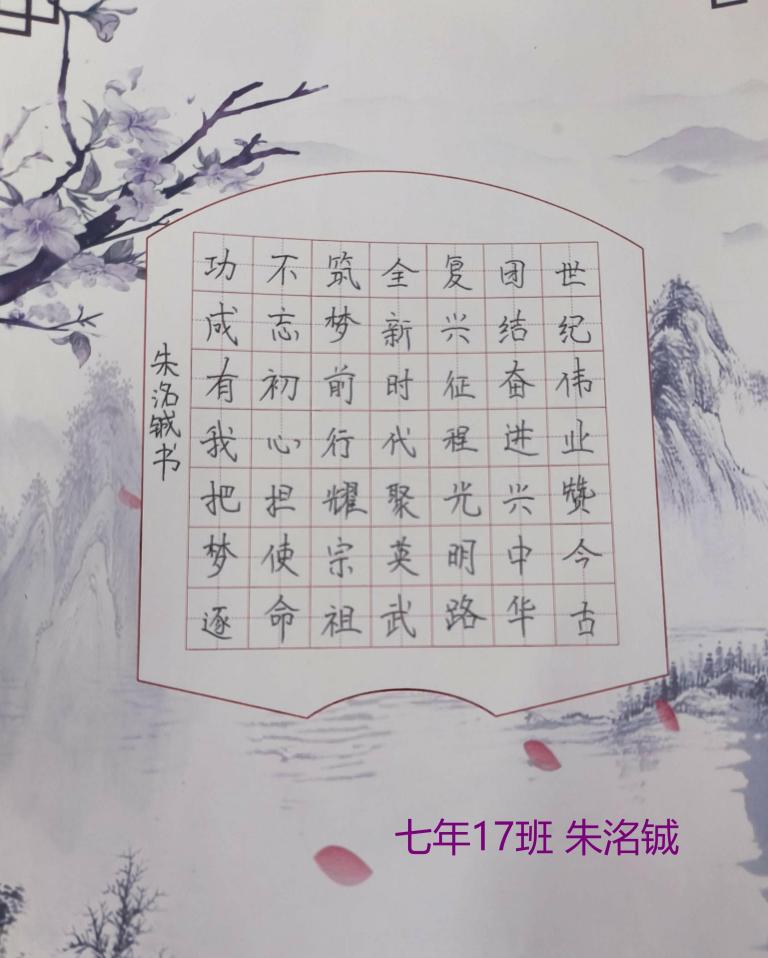 世纪伟业赞今古
团结奋进兴中华
复兴征程光明路
全新时代聚英武
筑梦前行耀宗祖
不忘初心担使命
功成有我把梦逐
朱洺铖书
七年17班 朱洺铖